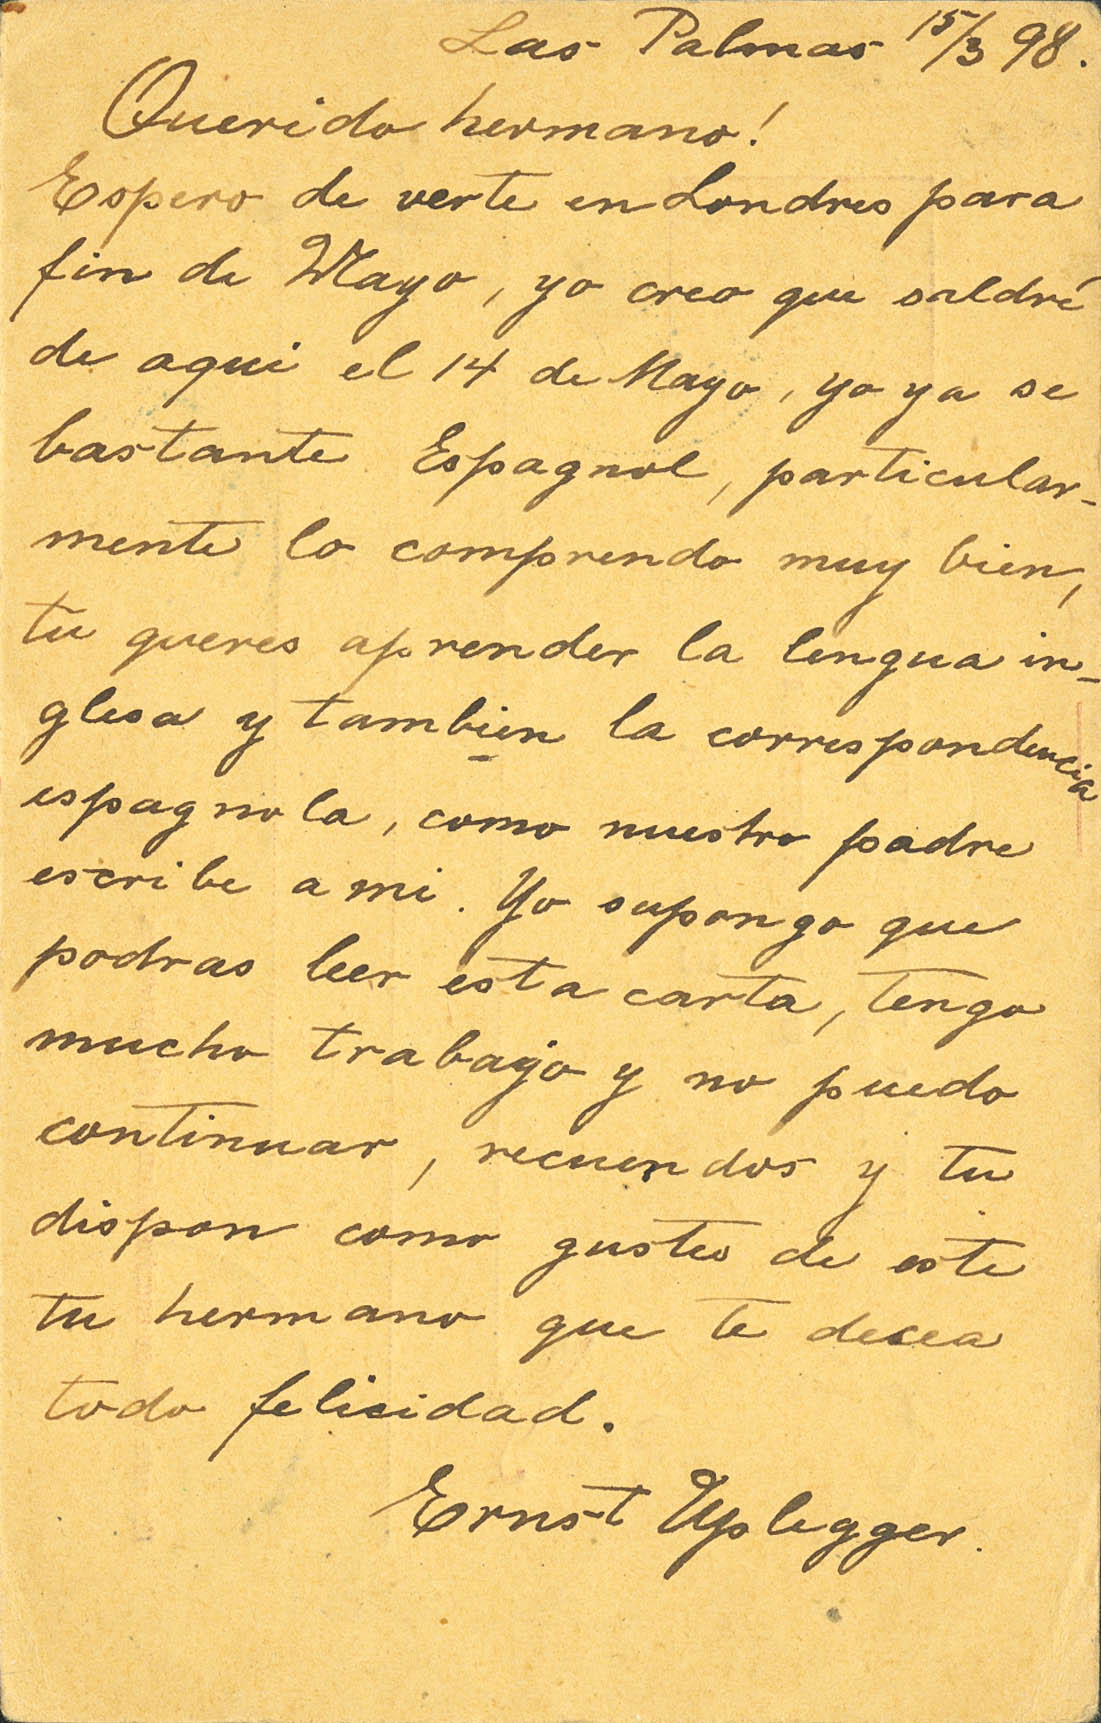 Las Palmas 15/3 98.
Querido hermano!
Espero de verte en Londres para
fin de Mayo, yo creo que saldré
de aqui el 14 de Mayo, yo ya se
bastante Espagnol, particular-
mente lo comprendo muy bien,
tu queres aprender la lengua in-
glesa y tambien la correspondencia
espagnola, como nuestro padre
escribe a mi. Yo supongo que
podras leer esta carta, tengo
mucho trabajo y no puedo
continuar, recuerdos y tu
dispon como gustes de este
tu hermano que te desea
todo felicidad.
Ernst Uplegger.